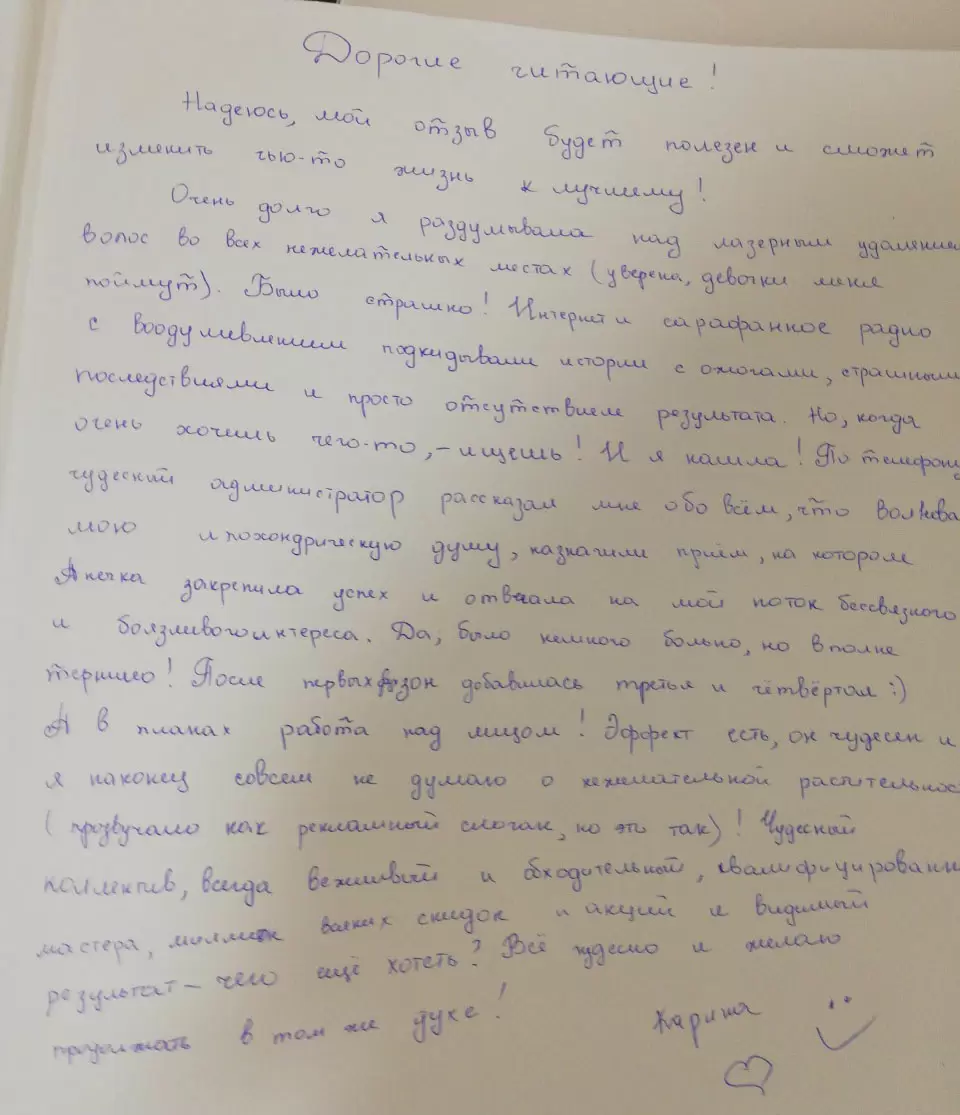 Дорогие читающие!
Надеюсь, мой отзыв будет полезен и сможет
изменить чью-то жизнь к лучшему!
Очень долго я раздумывала над лазерным удалением
волос во всех нежелательных местах (уверена, девочки меня
поймут). Было страшно! Интернет и сарафанное радио
с воодушевлением подкидывали истории с ожогами, страшными
последствиями и просто отсутствием результата. Но, когда
очень хочешь чего-то, - ищешь! И я нашла! По телефону
чудесный администратор рассказал мне обо всём, что волнова
мою ипохондрическую душу, назначили приём, на котором
Анечка закрепила успех и отвечала на мой поток бессвязного
и боязливого интереса. Да, было немного больно, но вполне
терпимо! После первых зон добавилась третья и четвёртая :)
А в планах работа над лицом! Эффект есть, он чудесен и
я наконец совсем не думаю о нежелательной растительнос
(прозвучало как рекламный слоган, но это так)! Чудесный
коллектив, всегда вежливый и обходительный, квалифицированн
мастера, миллион всяких скидок и акций и видимый
результат - чего ещё хотеть? Всё чудесно и желаю
продолжать в том же духе!
Карина